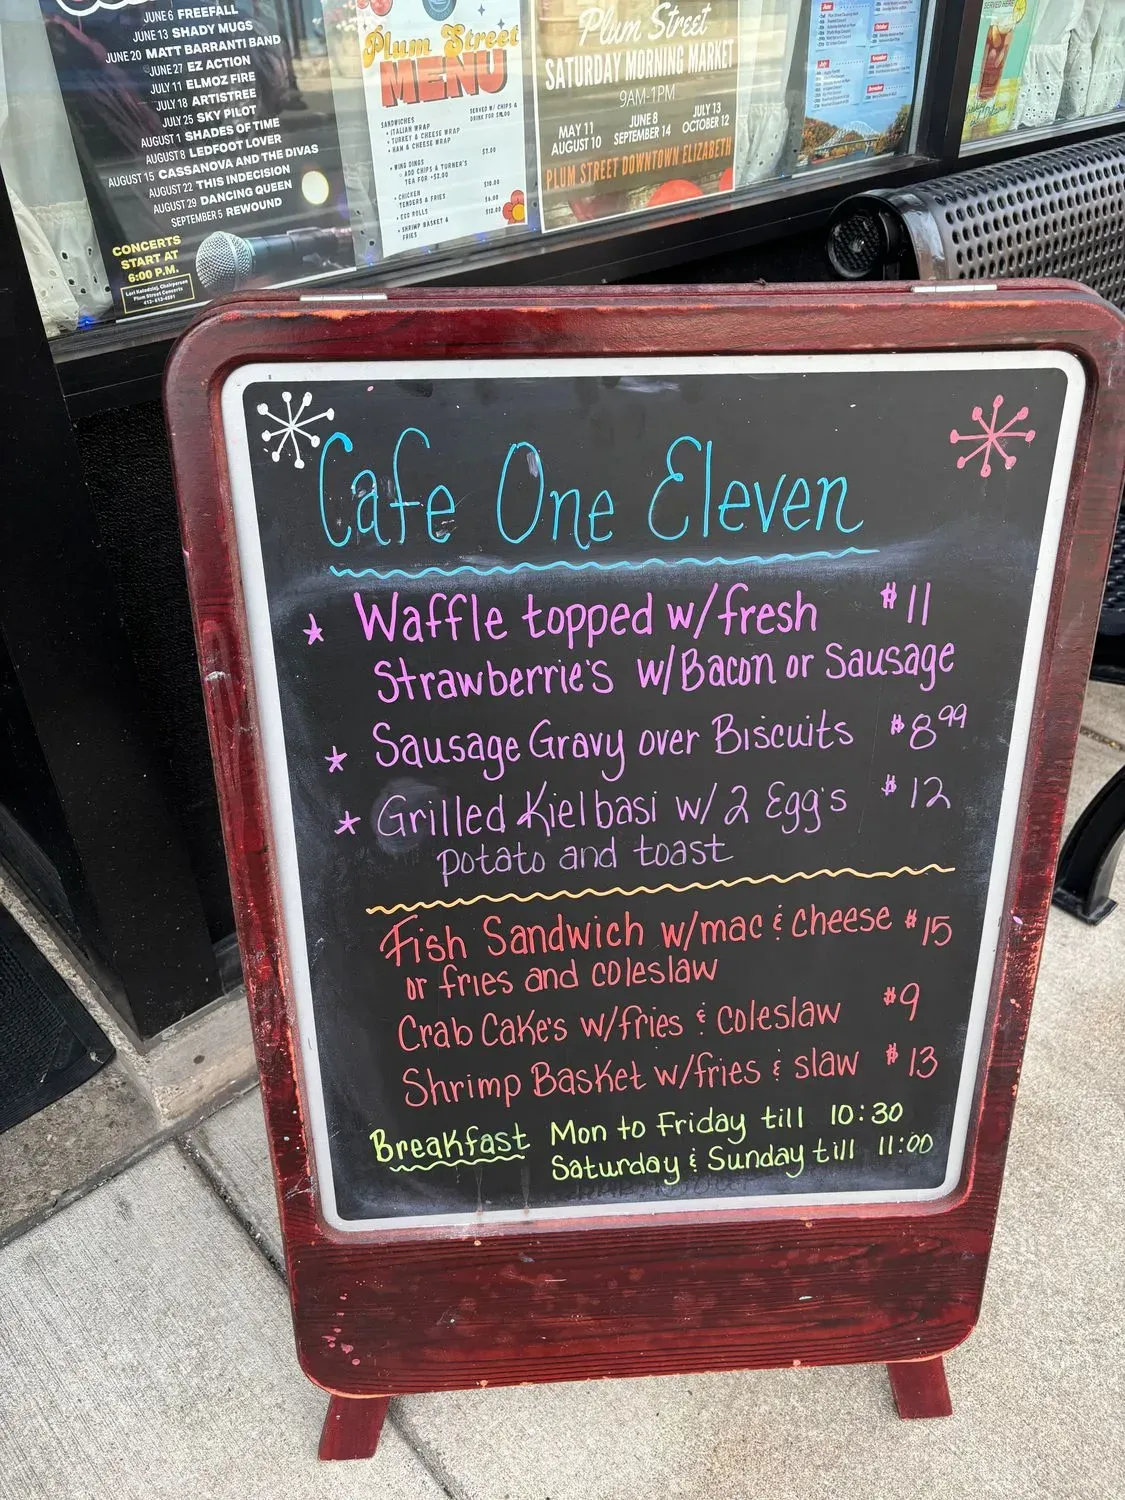 JUNE 6 FREEFALL
JUNE 13 SHADY MUGS
JUNE 20 MATT BARRANTI BAND
JUNE 27 EZ ACTION
JULY 11 ELMOZ FIRE
JULY 18 ARTISTREE
JULY 25 SKY PILOT
AUGUST 1 SHADES OF TIME
AUGUST 8 LEDFOOT LOVER
AUGUST 15 CASSANOVA AND THE DIVAS
AUGUST 22 THIS INDECISION
AUGUST 29 DANCING QUEEN
SEPTEMBER 5 REWOUND
CONCERTS
START AT
6:00 P.M.
Plum Street Concerts
Plum Street
MENU
SERVED W/ CHIPS &
SANDWICHES
• ITALIAN WRAP
• TURKEY & CHEESE WRAP
• HAM & CHEESE WRAP
• WING DINGS
ADD CHIPS & TURNER'S
TEA FOR +$2.00
• CHICKEN
TENDERS & FRIES
$10.00
• EGG ROLLS
• SHRIMP BASKET &
FRIES
$12.00
Plum Street
SATURDAY MORNING MARKET
9AM-1PM
MAY 11 JUNE 8 JULY 13
AUGUST 10 SEPTEMBER 14 OCTOBER 12
PLUM STREET DOWNTOWN ELIZABETH
Cafe One Eleven
★ Waffle topped w/fresh $11
Strawberrie's w/Bacon or Sausage
★ Sausage Gravy over Biscuits $8.99
★ Grilled Kielbasi w/2 Egg's $12
potato and toast
Fish Sandwich w/mac & cheese $15
or fries and coleslaw
Crab Cake's w/fries & coleslaw $9
Shrimp Basket w/fries & slaw $13
Breakfast Mon to Friday till 10:30
Saturday & Sunday till 11:00